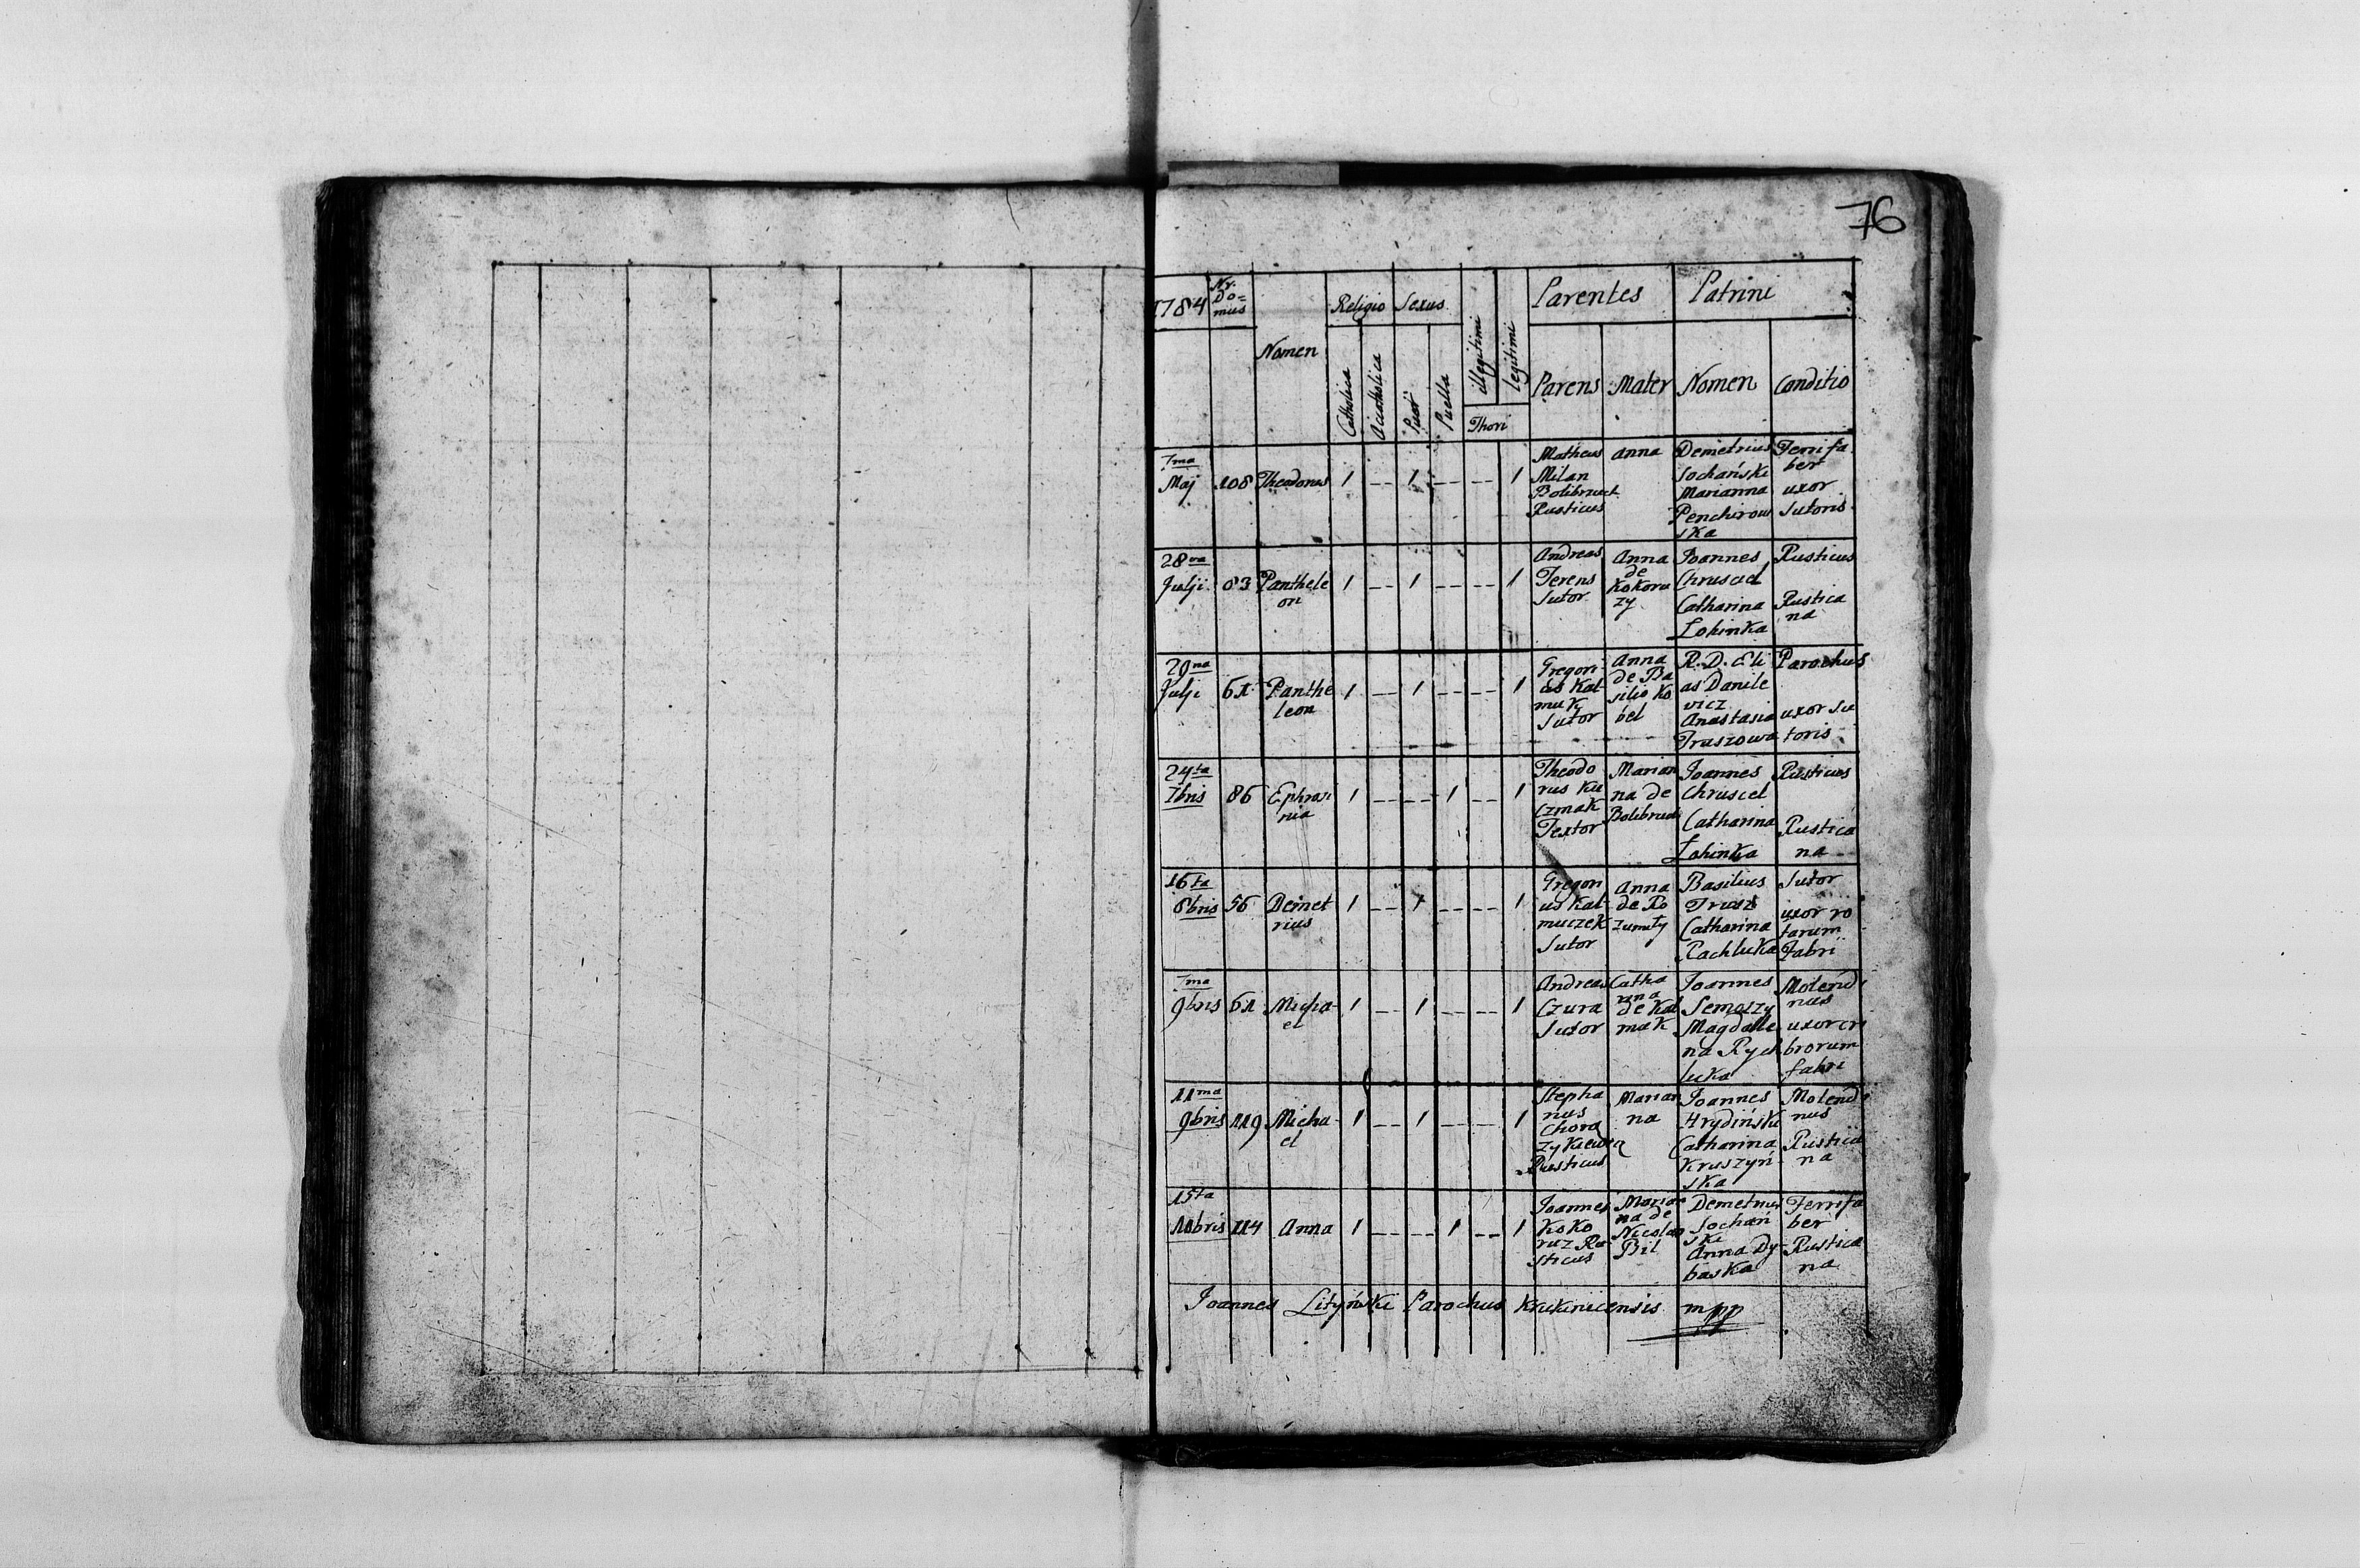 76
1784 Nr. Do= mus Nomen Religio Sexus illegitimi legitimi Parentes Patrini
Catholica Acatholica Puer Puella Thori Parens Mater Nomen Conditio
7ma Maj 108 Theodorus 1 -- 1 -- -- 1 Matheus Milan Rusticus Anna Demetrius Sochański Marianna Penchrow ska Ferrifa ber uxor Sutoris
28va Julji 83 Panthele on 1 -- 1 -- -- 1 Andreas Ferens Sutor Anna de Kokoru zy Joannes Chruscel Catharina Łohinka Rusticus Rustica na
29na Julji 61 Panthe leon 1 -- 1 -- -- 1 Gregori us Kal muk Sutor Anna de Ba silio Ko bel R. D. Eli as Danile vicz Anastasia Pruszowa Parochus uxor Su toris
24ta 7bris 86 1 -- -- 1 -- 1 Theodo rus Ku czmak Textor Marian na de Joannes Chruscel Catharina Łohinka Rusticus Rustica na
16ta 8bris 56 Demet rius 1 -- 1 -- -- 1 Gregori us Kal muczek Sutor Anna de Ro Basilius Catharina Rachluka Sutor uxor ro tarum Fabri
7ma 9bris 61 Micha- el 1 -- 1 -- -- 1 Andreas Czura Sutor Catha rina de Kal mak Joannes Magdale na Rych luka Molendi nus uxor cri brorum fabri
11ma 9bris 119 Micha- el 1 -- 1 -- -- 1 Stepha nus Rusticus Marian na Joannes Hrydiński Catharina Kruszyń ska Molendi nus Rustica na
15ta 10bris 114 Anna 1 -- -- 1 -- 1 Joannes Koko ruz Ru sticus Marian na de Nicolao Bil Demetrius Sochań ski Anna Dy- baska Ferrifa ber Rustica na
Joannes Lityński Parochus Krukinicensis mpp